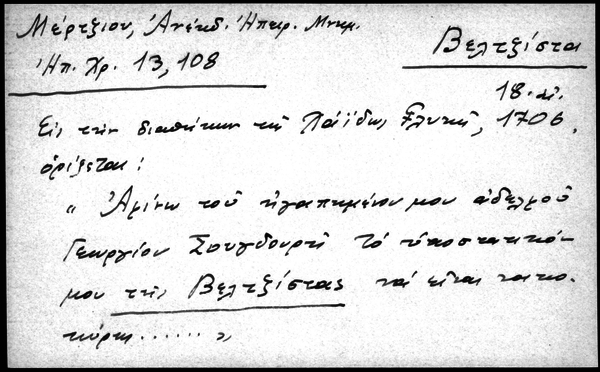 Μέρτζιου, Ἀνέκδ. Ἠπειρ. Μνημ.
Ἠπ. Χρ. 13, 108
Βελτζίστα
18. αἰ.
Εἰς τὴν διαθήκην τῆς Χάϊδως Γλυκῆ, 1706,
ὁρίζεται:
" Ἀφίνω τοῦ ἠγαπημένου μου ἀδελφοῦ
Γεωργίου Σουγδουρῆ τὸ ὑποστατικόν
μου τῆς Βελτζίστας νά εἶναι νοικο-
κύρης ...... "